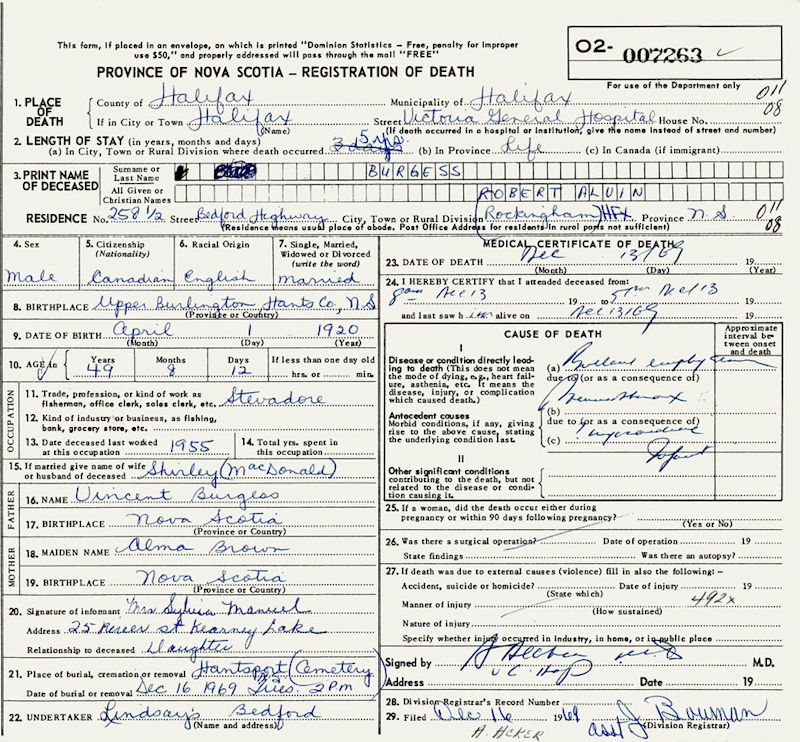 This form, if placed in an envelope, on which is printed "Dominion Statistics — Free, penalty for improper
use $50," and properly addressed will pass through the mail "FREE"
O2- 007263
PROVINCE OF NOVA SCOTIA — REGISTRATION OF DEATH
For use of the Department only
011
08
1. PLACE OF DEATH
County of Halifax Municipality of Halifax
If in City or Town Halifax Street Victoria General Hospital House No.
(Name) (If death occurred in a hospital or institution, give the name instead of street and number)
2. LENGTH OF STAY (in years, months and days)
(a) In City, Town or Rural Division where death occurred 3 days 5 yrs. (b) In Province Life (c) In Canada (if immigrant)
3. PRINT NAME OF DECEASED
Surname or Last Name BURGESS
All Given or Christian Names ROBERT ALVIN
RESIDENCE No. 258 1/2 Street Bedford Highway City, Town or Rural Division (Rockingham) HFX Province N.S.
011
08
(Residence means usual place of abode. Post Office Address for residents in rural parts not sufficient)
4. Sex
Male
5. Citizenship (Nationality)
Canadian
6. Racial Origin
English
7. Single, Married, Widowed or Divorced (write the word)
Married
8. BIRTHPLACE Upper Burlington Hants Co, N.S
(Province or Country)
9. DATE OF BIRTH April 1 1920
(Month) (Day) (Year)
10. AGE in Years Months Days If less than one day old
49 8 12 hrs. or min.
OCCUPATION
11. Trade, profession, or kind of work as fisherman, office clerk, sales clerk, etc. Stevadore
12. Kind of industry or business, as fishing, bank, grocery store, etc.
13. Date deceased last worked at this occupation 1955
14. Total yrs. spent in this occupation
15. If married give name of wife or husband of deceased Shirley (MacDonald)
FATHER
16. NAME Vincent Burgess
17. BIRTHPLACE Nova Scotia
(Province or Country)
MOTHER
18. MAIDEN NAME Alma Brown
19. BIRTHPLACE Nova Scotia
(Province or Country)
20. Signature of informant Mrs Sylvia Manuel
Address 25 st Kearney Lake
Relationship to deceased Daughter
21. Place of burial, cremation or removal Hantsport (Cemetery)
Date of burial or removal Dec 16 1969 Tues. 2 PM
22. UNDERTAKER Lindsay's Bedford
(Name and address)
MEDICAL CERTIFICATE OF DEATH
23. DATE OF DEATH Dec 13/69 19
(Month) (Day) (Year)
24. I HEREBY CERTIFY that I attended deceased from:
Dec 13 19 to Dec 13 19
and last saw h im alive on Dec 13/69 19
CAUSE OF DEATH
Approximate interval between onset and death
I
Disease or condition directly leading to death (This does not mean the mode of dying, e.g., heart failure, asthenia, etc. It means the disease, injury, or complication which caused death.)
(a)
due to (or as a consequence of)
Antecedent causes
Morbid conditions, if any, giving rise to the above cause, stating the underlying condition last.
(b)
due to (or as a consequence of)
(c)
II
Other significant conditions contributing to the death, but not related to the disease or condition causing it.
25. If a woman, did the death occur either during pregnancy or within 90 days following pregnancy?
(Yes or No)
26. Was there a surgical operation? Date of operation 19
State findings Was there an autopsy?
27. If death was due to external causes (violence) fill in also the following:—
Accident, suicide or homicide? Date of injury 19
(State which)
Manner of injury 492x
(How sustained)
Nature of injury
Specify whether injury occurred in industry, in home, or in public place
Signed by M.D.
Address Date 19
28. Division Registrar's Record Number
29. Filed Dec 16 1969 asst J Bouman
(Division Registrar)
A. ACKER